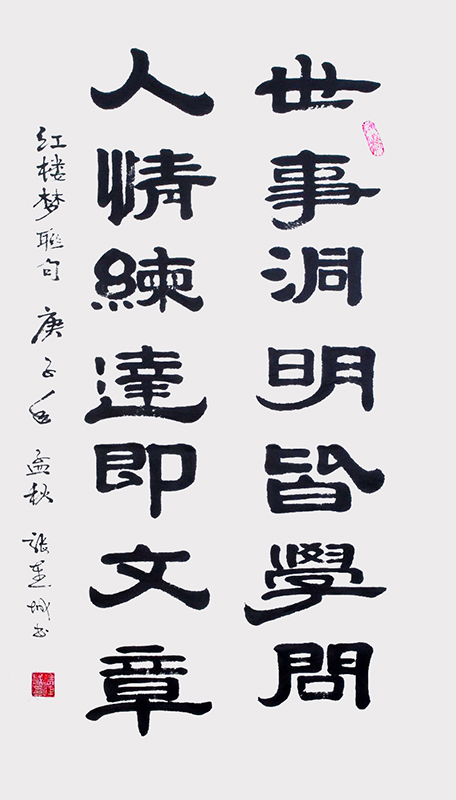 世事洞明皆學問
人情練達即文章
红楼梦联句 庚子年 孟秋 張 城书